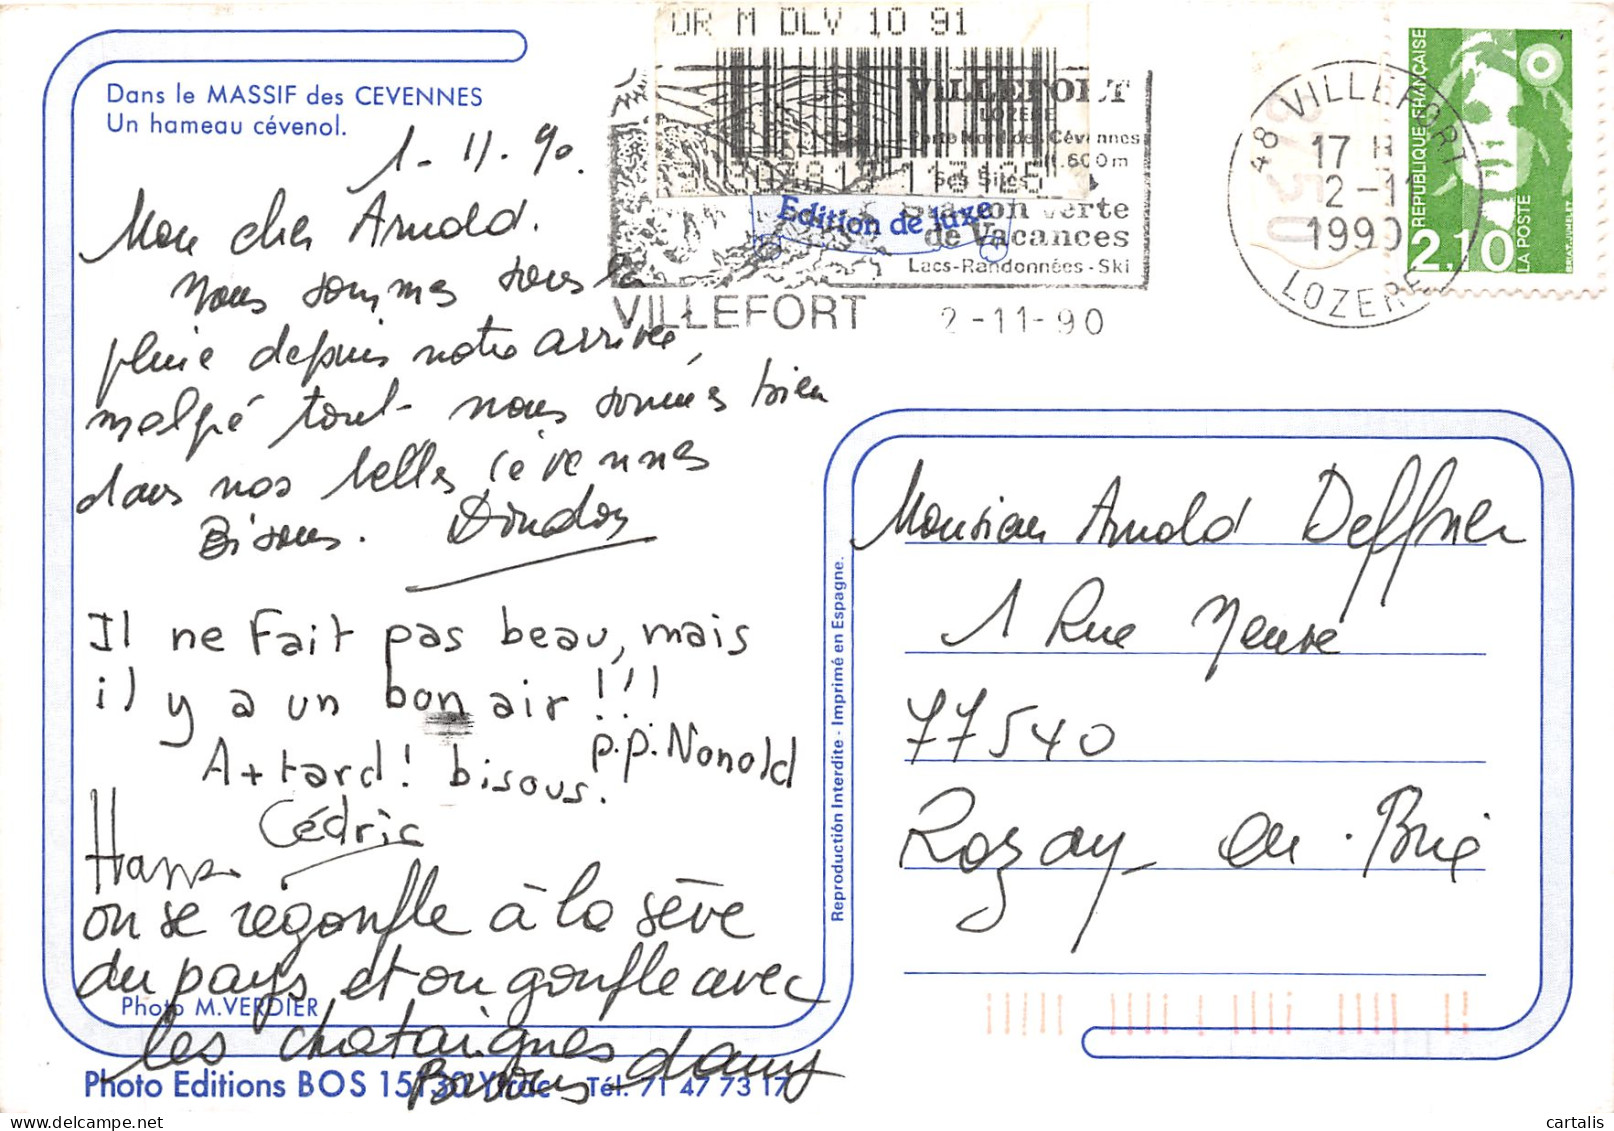 Dans le MASSIF des CEVENNES
Un hameau cévenol.
1-11-90
Mon cher Arnold.
Nous sommes sous la
pluie depuis notre arrivée,
malgré tout nous sommes bien
dans nos belles Cévennes
Bisous. Doudou
Il ne Fait pas beau, mais
il y a un bon air !!!
A + tard! bisous. p.p. Nonold
Cédric
on se regonfle à la sève
du pays et on gonfle avec
les chataignes
Bisous dany
Photo M.VERDIER
Photo Editions BOS 15130 Ytrac Tél. 71 47 73 17
Reproduction Interdite - Imprimé en Espagne.
DR M DLV 10 91
VILLEFORT
LOZERE
Porte Nord des Cévennes
1.600m
Ses Sites
Station verte
de Vacances
Lacs-Randonnées-Ski
Edition de luxe
VILLEFORT 2-11-90
48 VILLEFORT
17 H
2-11
1990
LOZERE
REPUBLIQUE FRANÇAISE
2.10
LA POSTE
Monsieur Arnold Deffner
1 Rue Neuve
77540
Rozay en Brie
cartalis